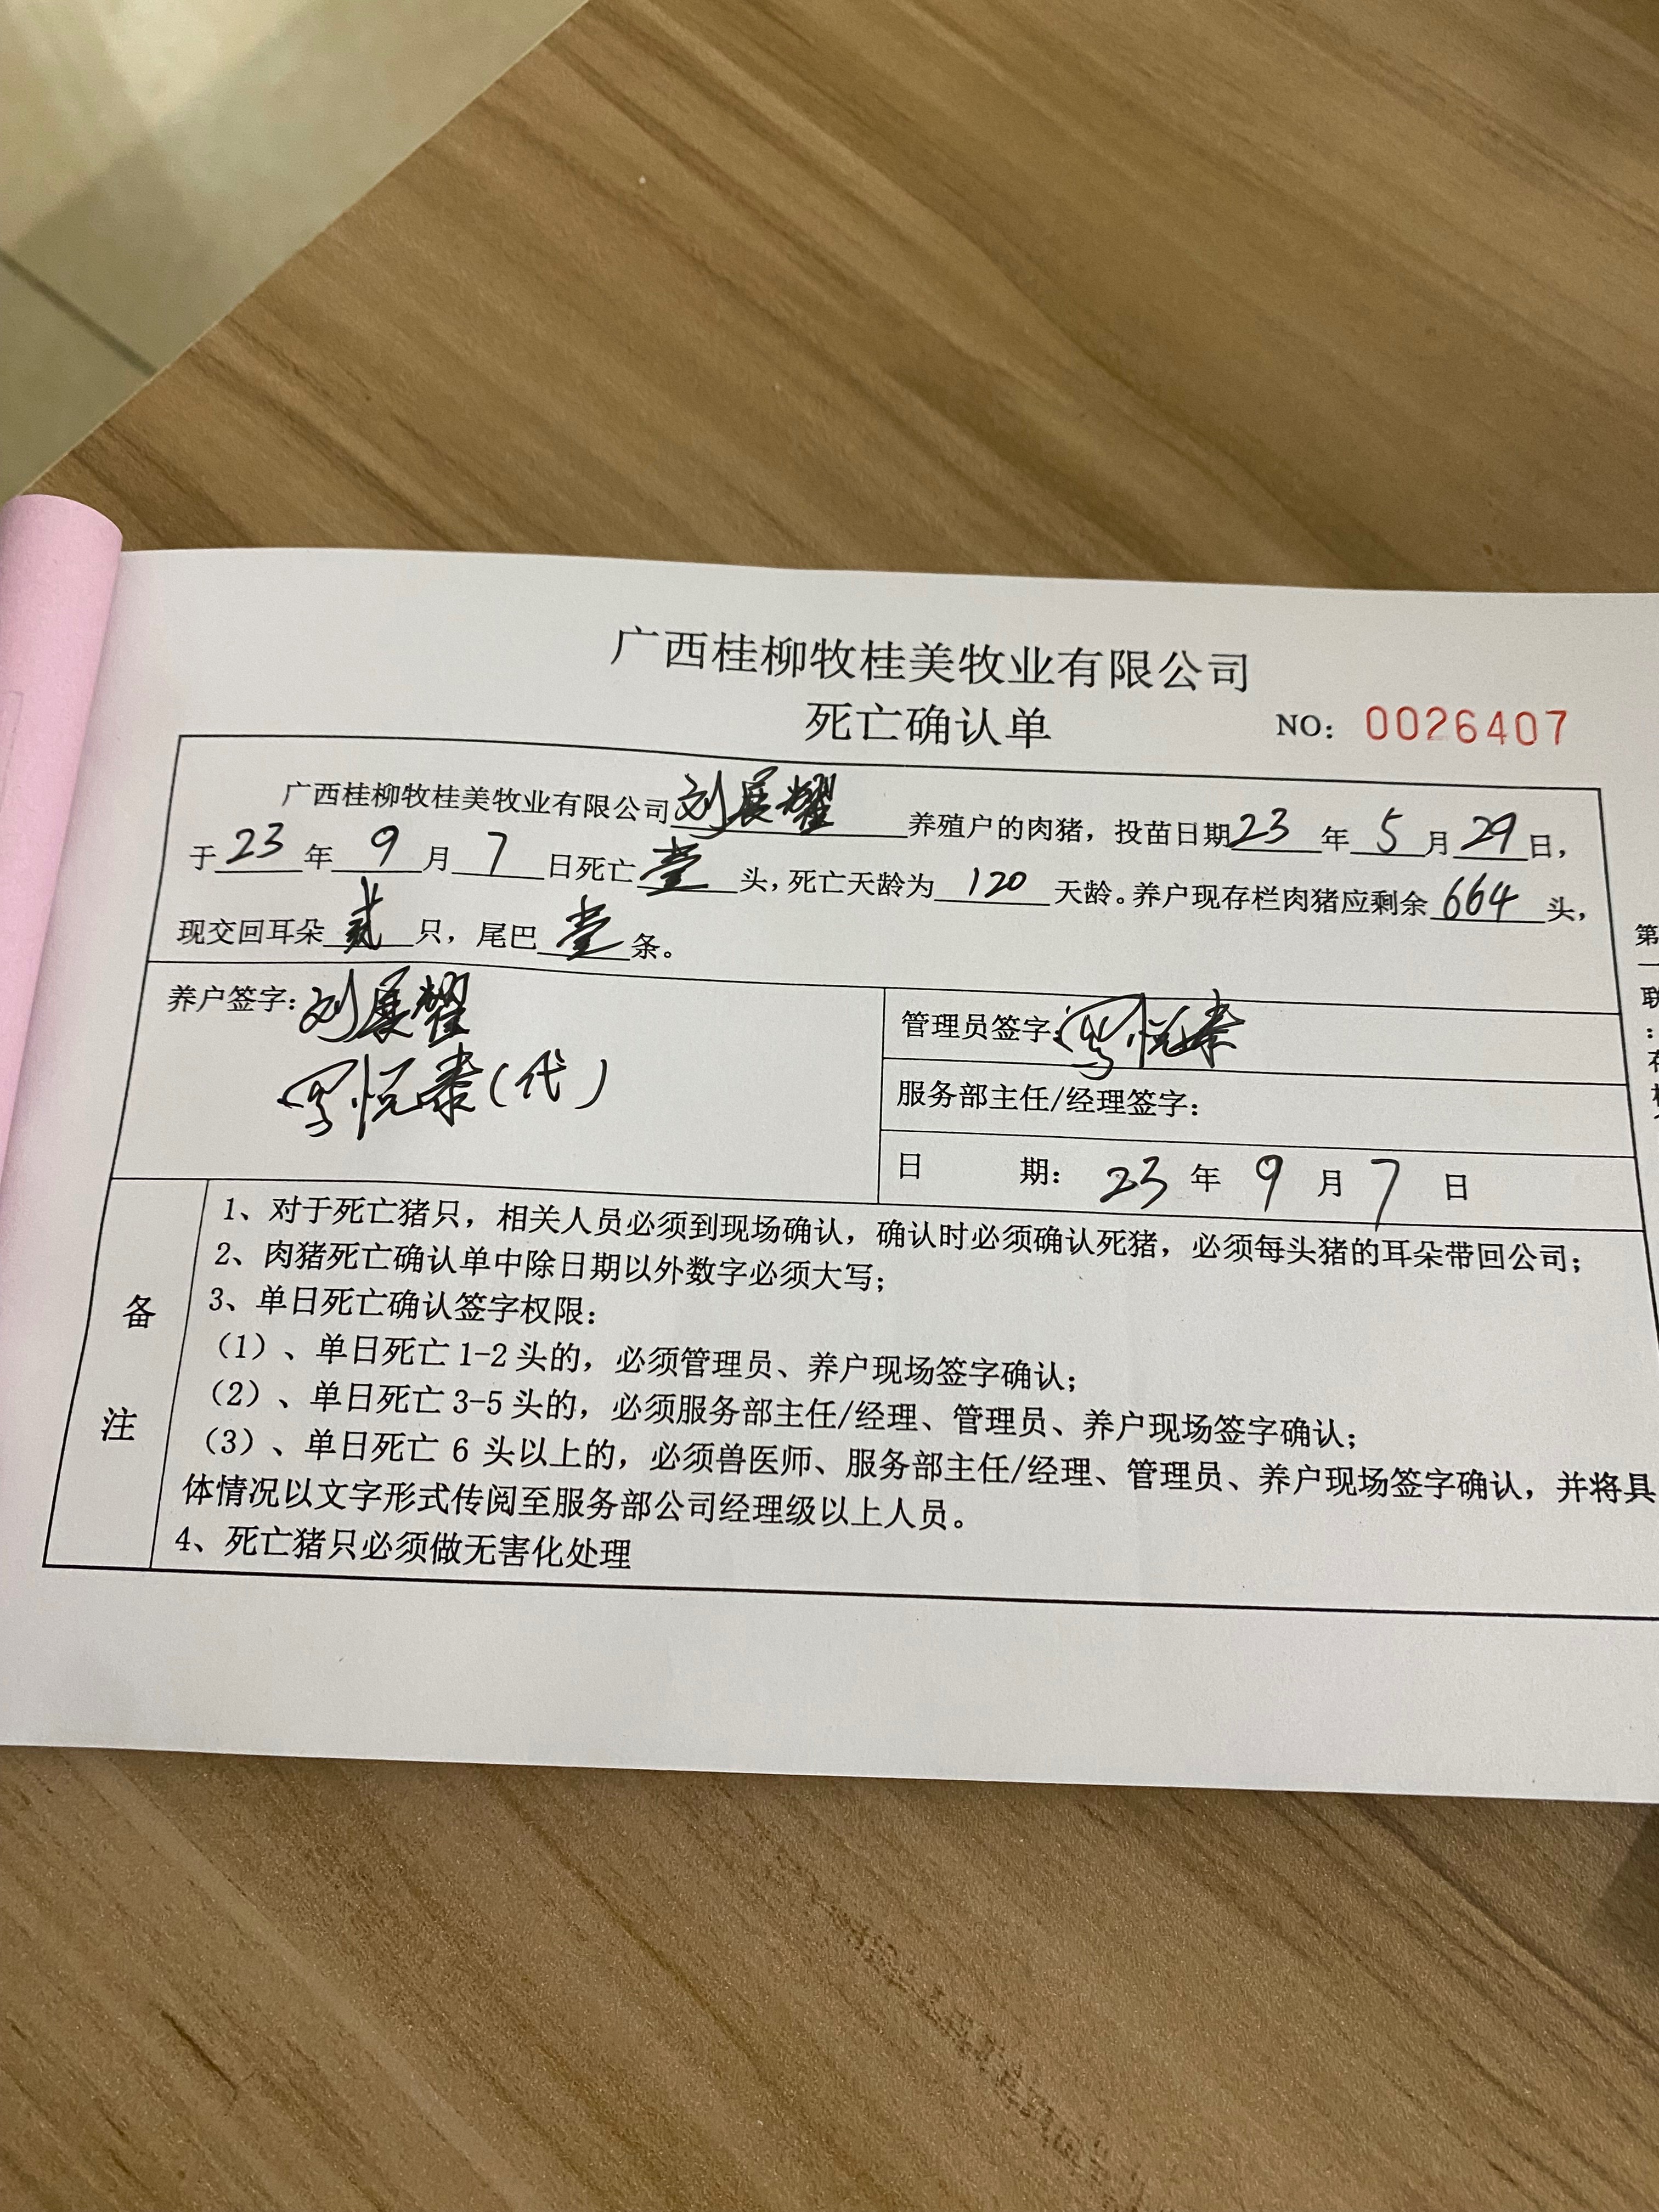 广西桂柳牧桂美牧业有限公司
死亡确认单
NO: 0026407
广西桂柳牧桂美牧业有限公司刘展耀养殖户的肉猪，投苗日期23年5月29日，
于23年9月7日死亡壹头，死亡天龄为120天龄。养户现存栏肉猪应剩余664头，
现交回耳朵贰只，尾巴壹条。
养户签字：刘展耀
悦泰（代）
管理员签字：悦泰
服务部主任/经理签字：
日期：23年9月7日
备注
1、对于死亡猪只，相关人员必须到现场确认，确认时必须确认死猪，必须每头猪的耳朵带回公司；
2、肉猪死亡确认单中除日期以外数字必须大写；
3、单日死亡确认签字权限：
（1）、单日死亡1-2头的，必须管理员、养户现场签字确认；
（2）、单日死亡3-5头的，必须服务部主任/经理、管理员、养户现场签字确认；
（3）、单日死亡6头以上的，必须兽医师、服务部主任/经理、管理员、养户现场签字确认，并将具
体情况以文字形式传阅至服务部公司经理级以上人员。
4、死亡猪只必须做无害化处理
第一联：